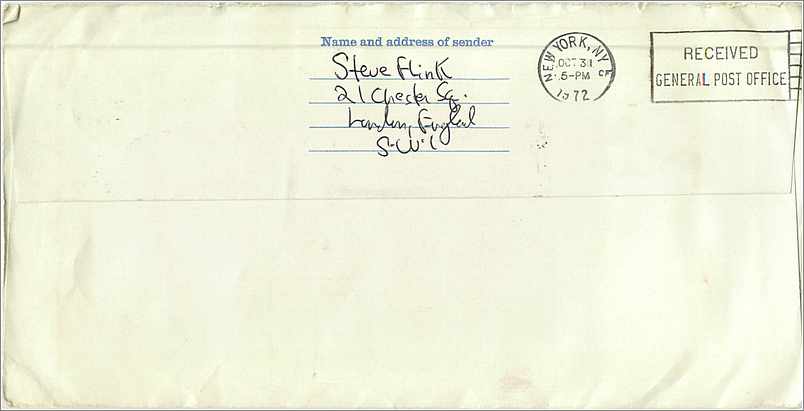 Name and address of sender
Steve Flink
21 Chester Sq.
London, England
S.W.1
NEW YORK, N.Y.
OCT 31
5-PM
1972
RECEIVED
GENERAL POST OFFICE